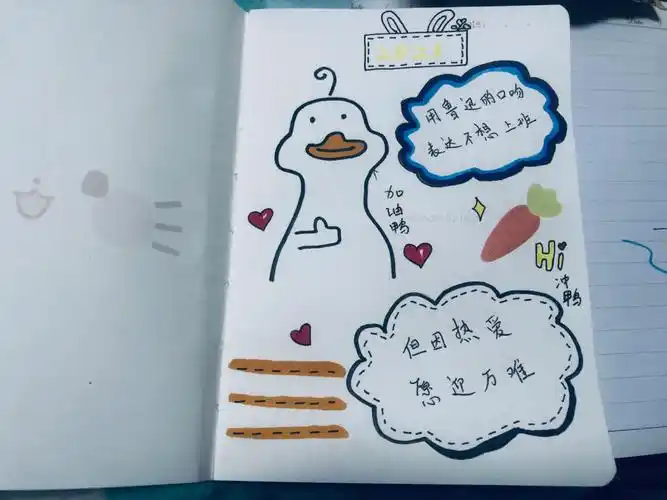 用鲁迅的口吻
表达不想上班
加油鸭
Hi
冲鸭
但因热爱
愿迎万难